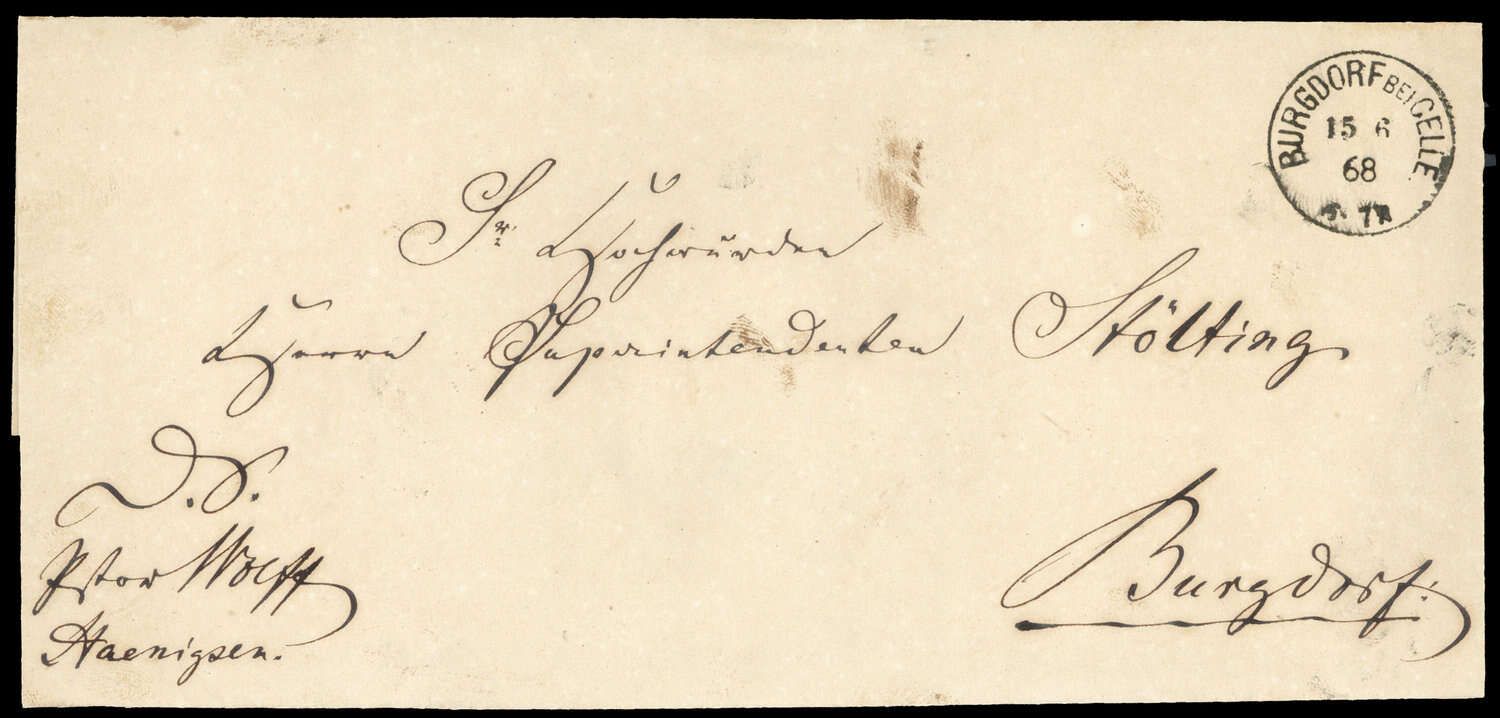 BURGDORF BEI CELLE
15 6
68
Sr Hochwürden
Herrn Superintendenten Stölting
D. S.
Pstor Wolff
Haenigsen.
Burgdorf.